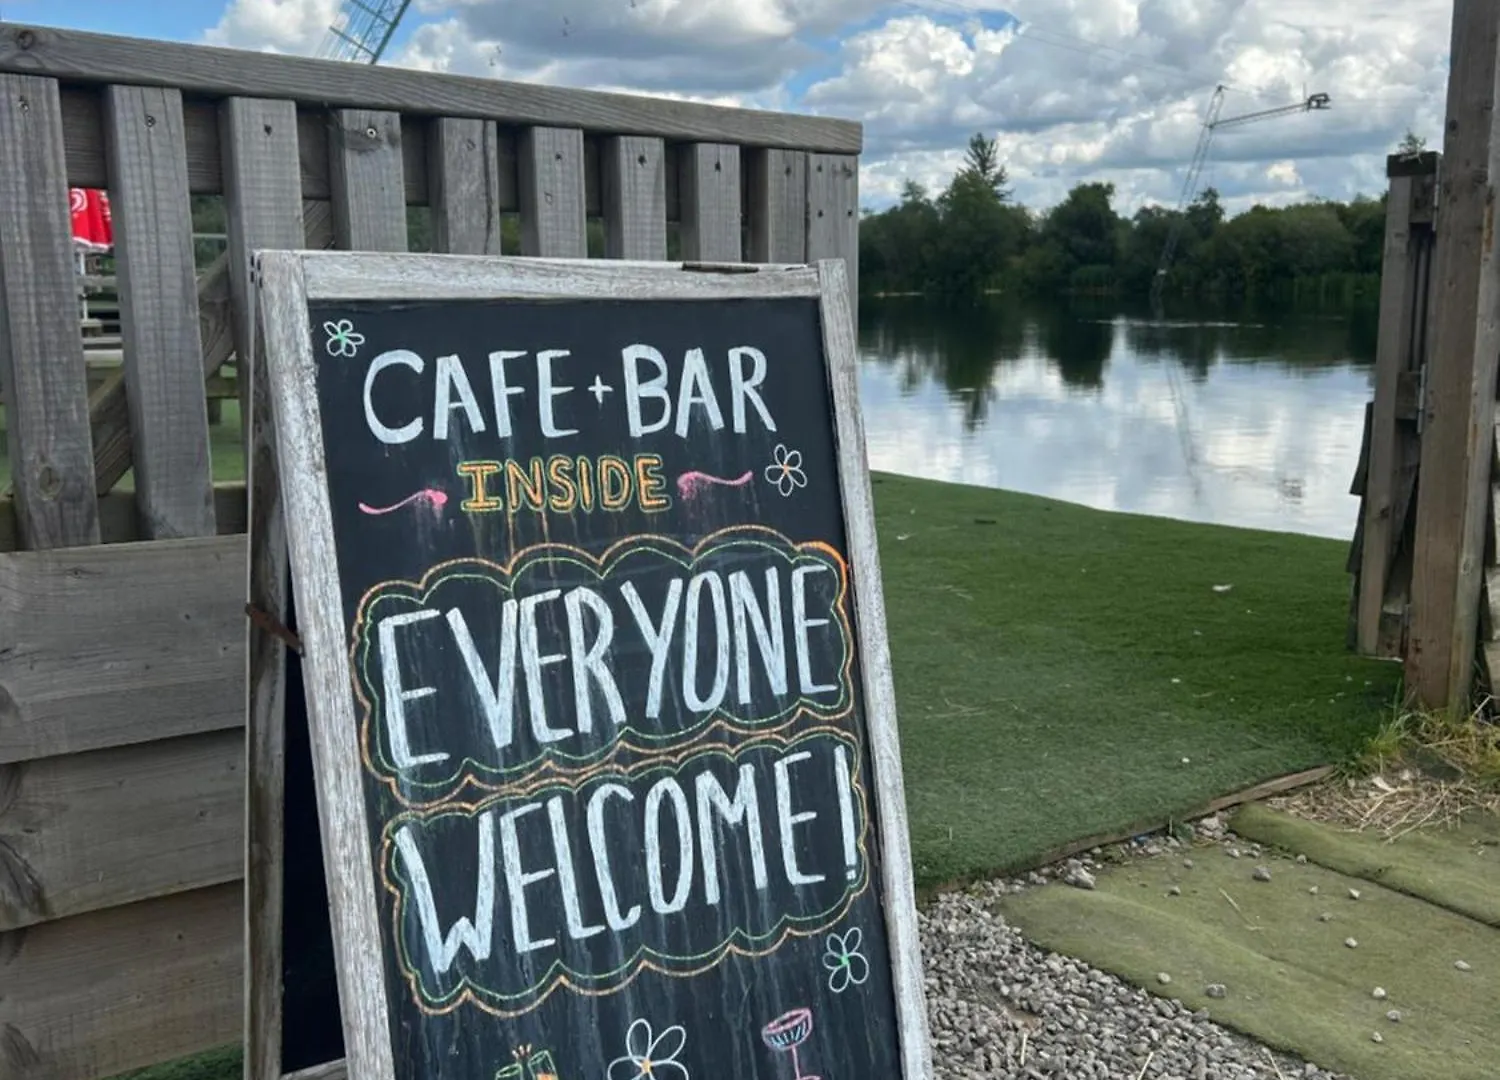 CAFE + BAR
INSIDE
EVERYONE
WELCOME!